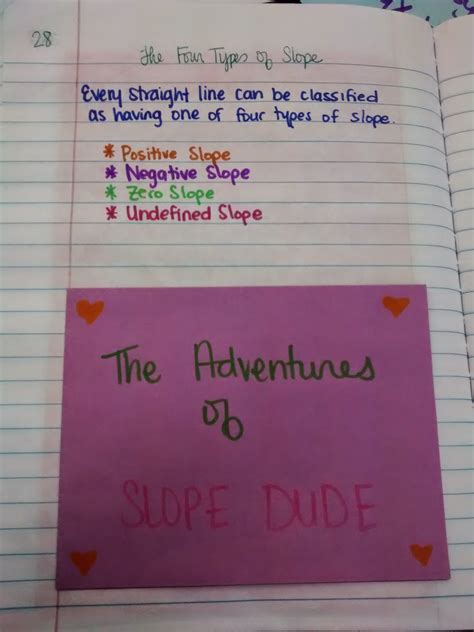 28
The Four Types of Slope
Every straight line can be classified
as having one of four types of slope.
* Positive Slope
* Negative Slope
* Zero Slope
* Undefined Slope
The Adventures
of
SLOPE DUDE